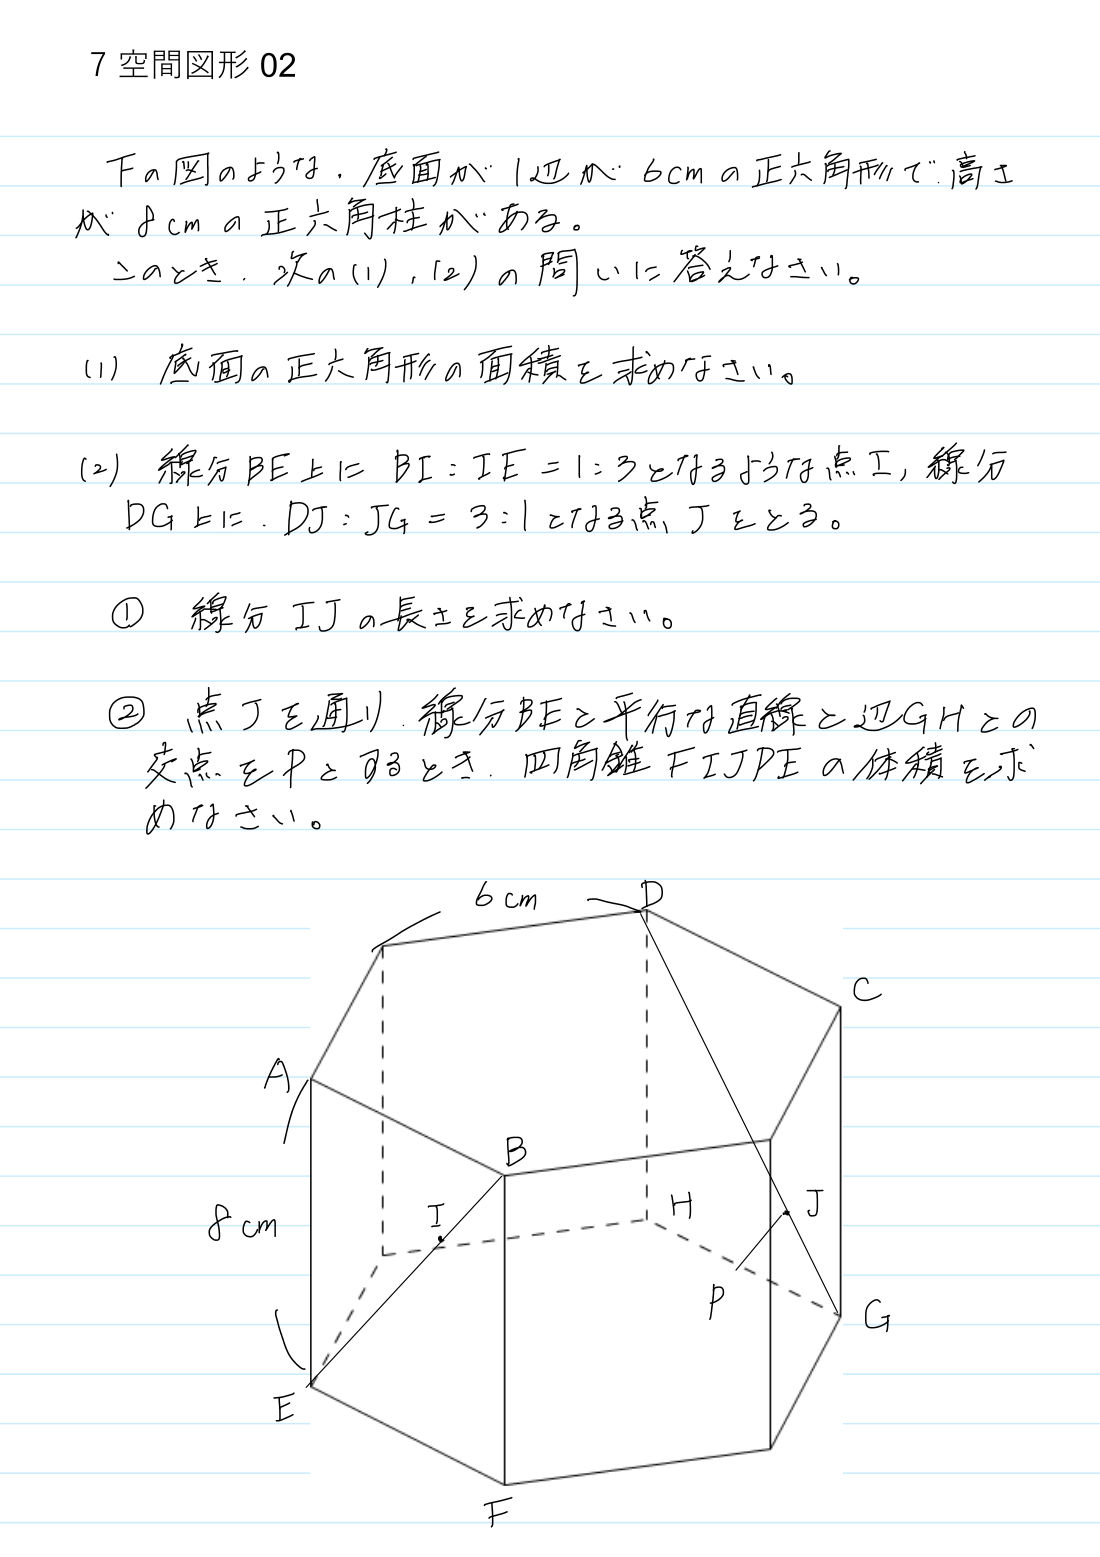 7 空間図形 02
下の図のような、底面が1辺が6cmの正六角形で、高さ
が8cmの正六角柱がある。
このとき、次の(1),(2)の問いに答えなさい。
(1) 底面の正六角形の面積を求めなさい。
(2) 線分BE上に BI:IE=1:3となるような点I,線分
DG上に、DJ:JG=3:1となる点Jをとる。
① 線分IJの長さを求めなさい。
② 点Jを通り、線分BEと平行な直線と辺GHとの
交点をPとするとき、四角錐FIJPEの体積を求
めなさい。
6cm
D
C
A
B
8cm
I
H
J
P
G
E
F